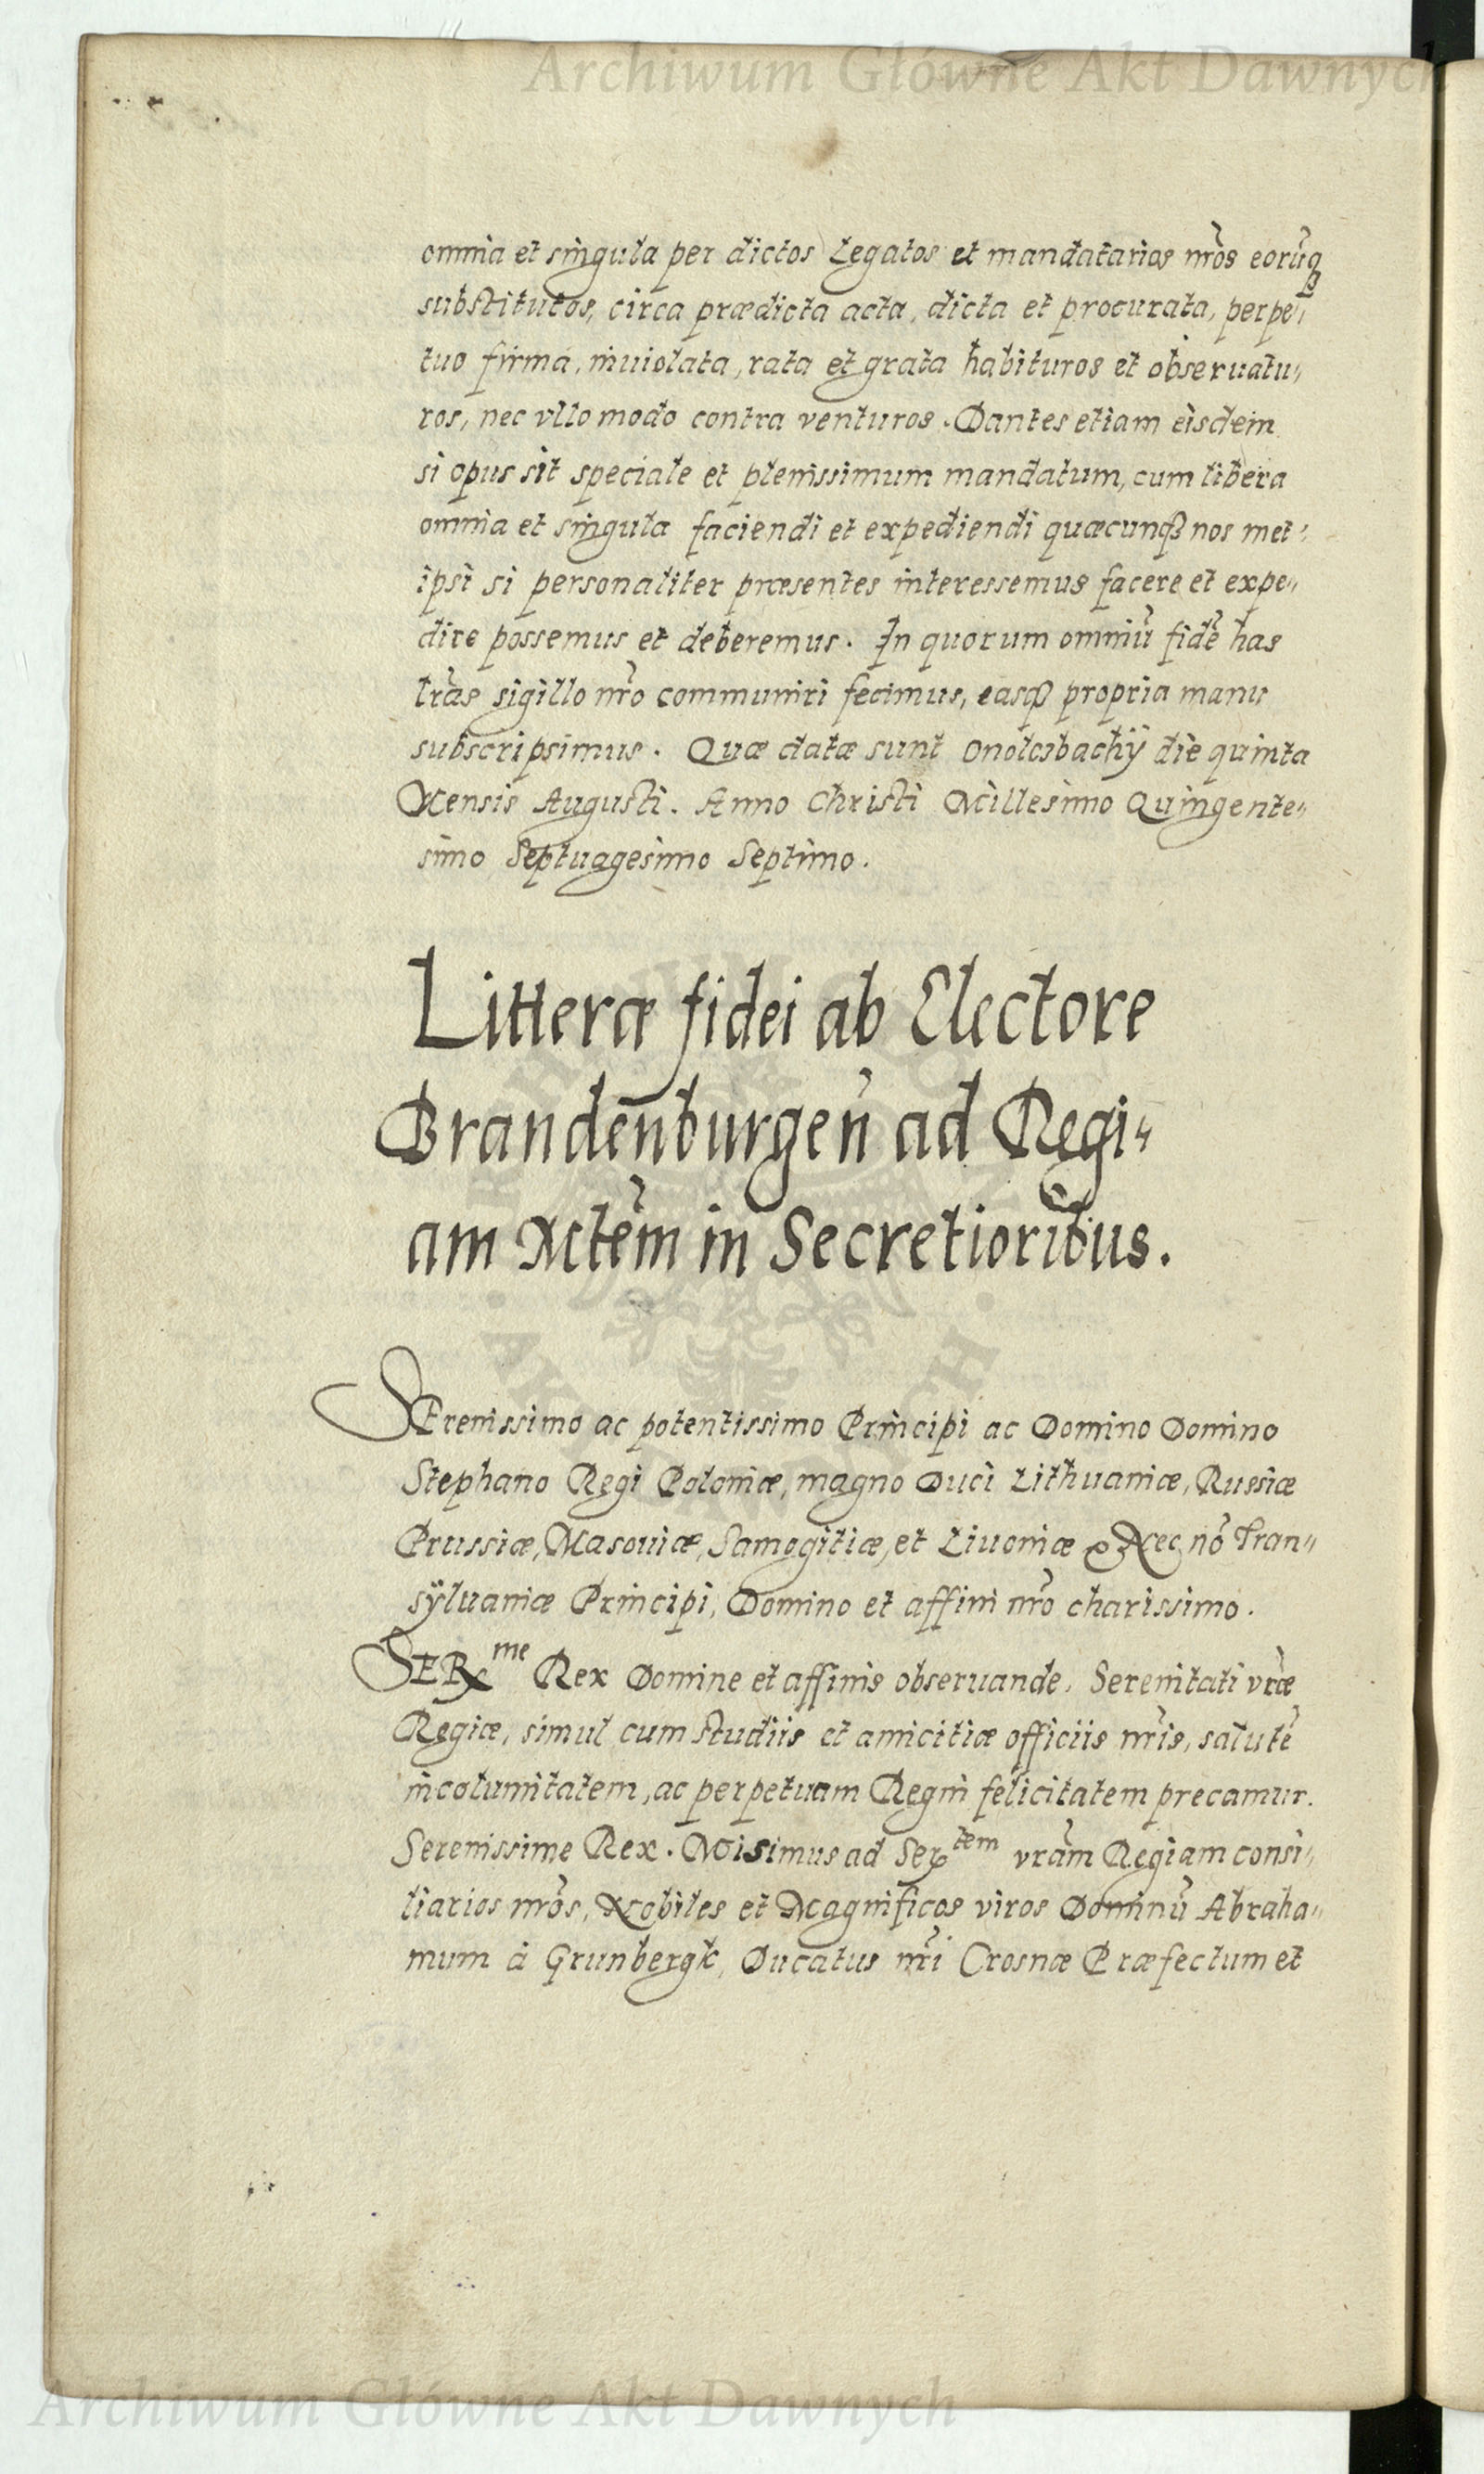 Archiwum Główne Akt Dawnych
omnia et singula per dictos Legatos et mandatarios nr̃os eorũq3
substitutos, circa prædicta acta, dicta et procurata, perpe„
tuo firma, inuiolata, rata et grata habituros et obseruatu„
ros, nec vllo modo contra venturos. Dantes etiam eisdem
si opus sit speciale et plenissimum mandatum, cum libera
omnia et singula faciendi et expediendi quæcunq3 nos met„
ipsi si personaliter præsentes interessemus facere et expe„
dire possemus et deberemus. In quorum omniũ fidẽ has
lr̃as sigillo nr̃o communiri fecimus, easq3 propria manu
subscripsimus. Quæ datæ sunt Onolcsbachÿ die quinta
Mensis Augusti. Anno Christi Millesimo Quingente„
simo Septuagesimo Septimo.
Litteræ fidei ab Electore
Brandenburgeñ ad Regi„
am Mctẽm in Secretioribus.
SErenissimo ac potentissimo Principi ac Domino Domino
Stephano Regi Poloniæ, magno Duci Lithuaniæ, Russiæ
Prussiæ, Masouiæ, Samogitiæ, et Liuoniæ &c Nec nõ Tran„
sÿluaniæ Principi, Domino et affini nr̃o charissimo.
SERme Rex Domine et affinis obseruande. Serenitati vr̃æ
Regiæ, simul cum studiis et amicitiæ officiis nr̃is, salutẽ
incolumitatem, ac perpetuam Regni felicitatem precamur.
Serenissime Rex. Misimus ad Sertem vr̃am Regiam consi„
liarios nr̃os, Nobiles et Magnificos viros Dominũ Abraha„
mum à Grunbergk, Ducatus nr̃i Crosnæ Præfectum et
Archiwum Główne Akt Dawnych